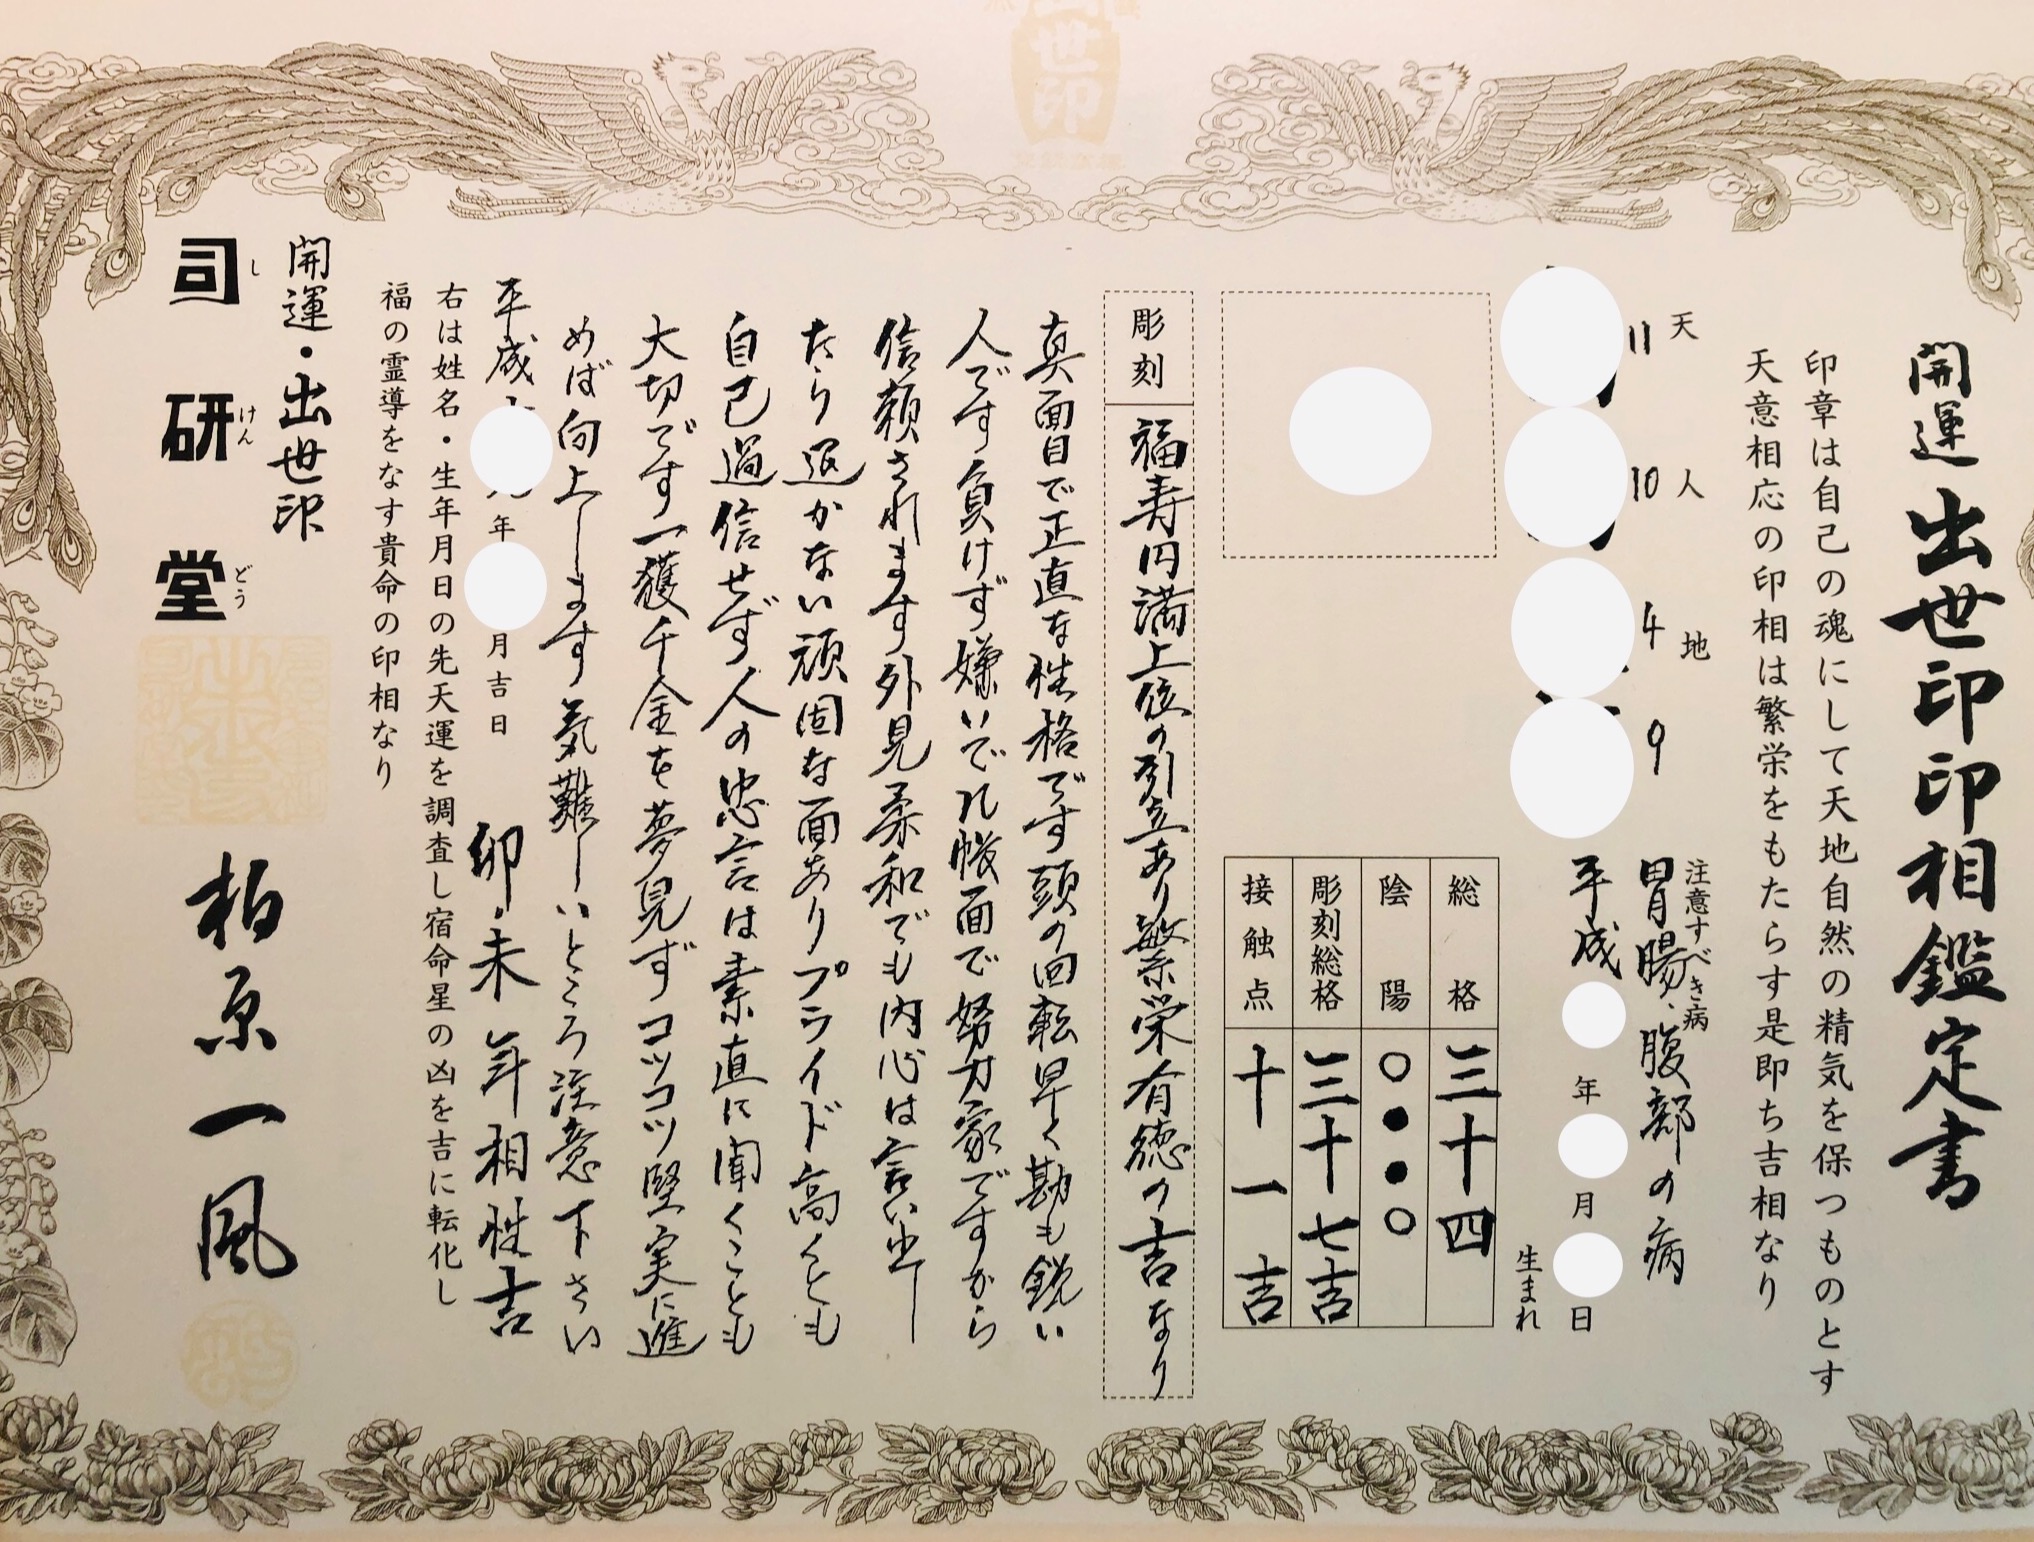 開運 出世印印相鑑定書
印章は自己の魂にして天地自然の精気を保つものとす
天意相応の印相は繁栄をもたらす是即ち吉相なり
天 人 地
11 10 4 9
注意すべき病
胃腸、腹部の病
平成 年 月 日
生まれ
総格 三十四
陰陽 ○●●○
彫刻総格 三十七吉
接触点 十一吉
彫刻 福寿円満上位の引立あり繁栄有徳の吉なり
真面目で正直な性格です頭の回転早く勘も鋭い
人です負けず嫌いで几帳面で努力家ですから
信頼されます外見柔和でも内心は言い出し
たら退かない頑固な面ありプライド高くとも
自己過信せず人の忠言は素直に聞くことも
大切です一獲千金を夢見ずコツコツ堅実に進
めば向上します気難しいところ注意下さい
平成 年 月吉日 卯.未年相性吉
右は姓名・生年月日の先天運を調査し宿命星の凶を吉に転化し
福の霊導をなす貴命の印相なり
開運・出世印
司研堂 柏原一風
しけんどう
世印